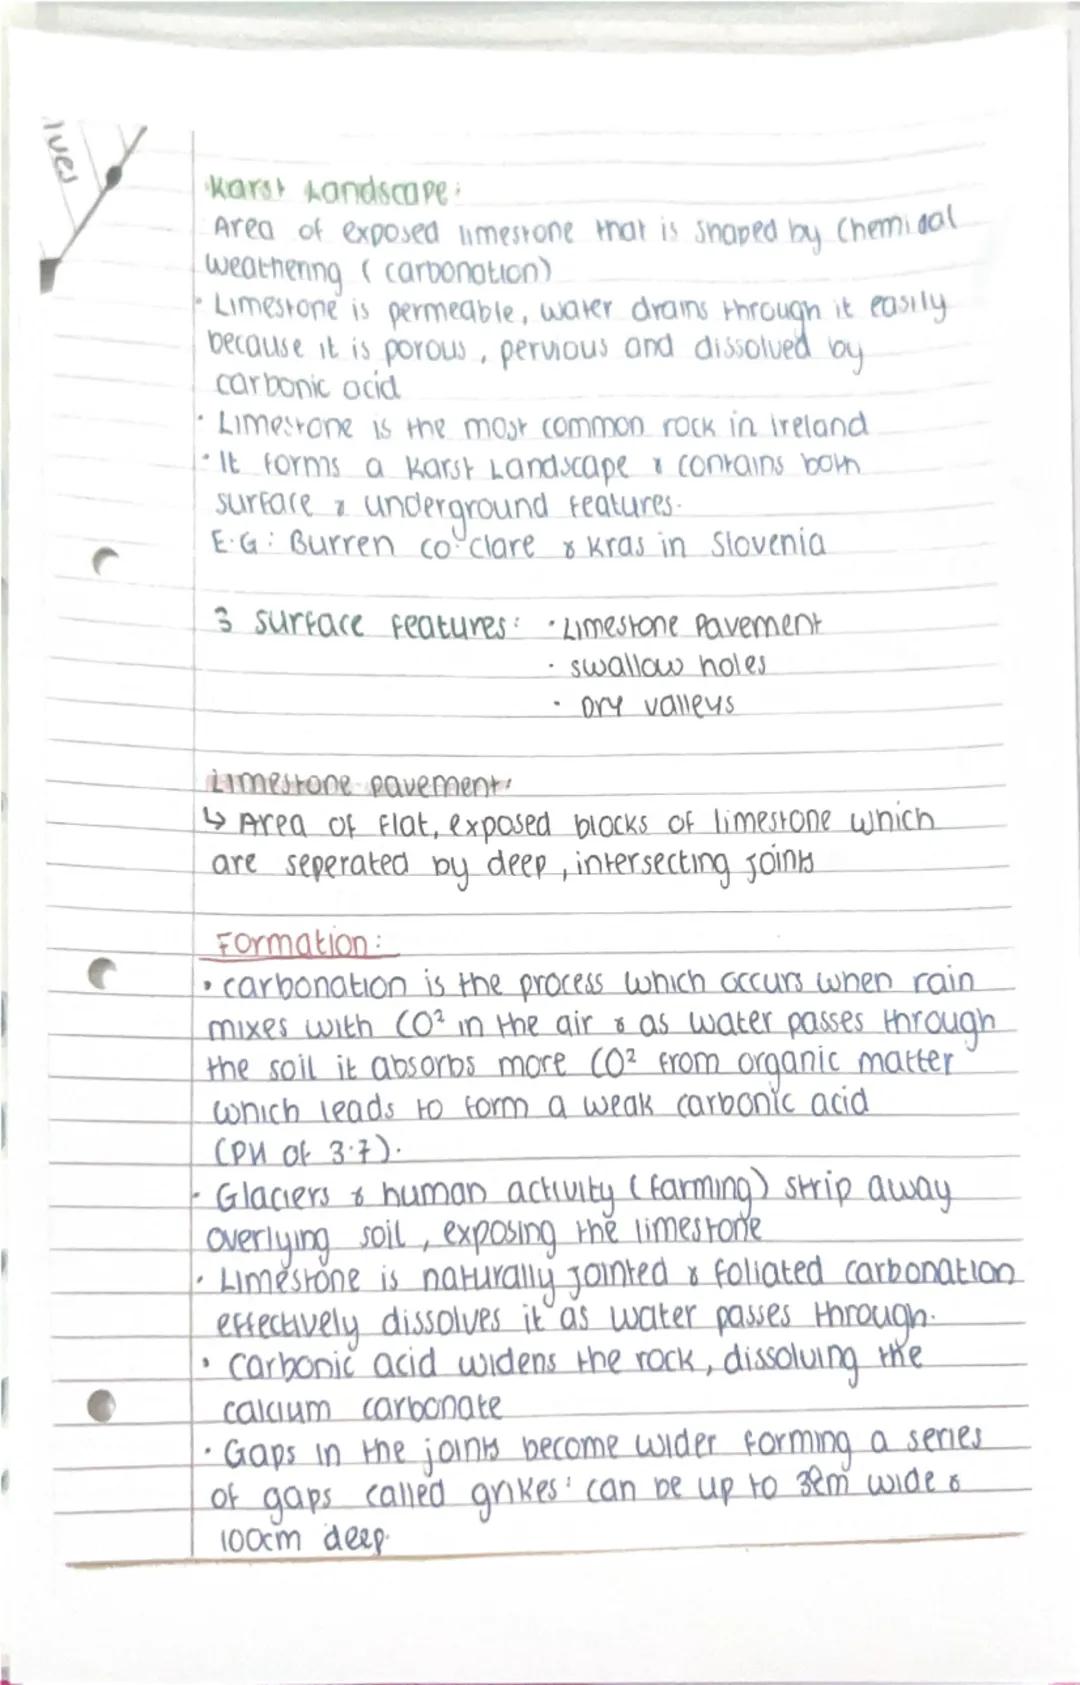 ives
Karst Landscape:
Area of exposed limestone that is shaped by Chemical
weathering ( carbonation)
• Limestone is permeable, water drains through it easily
because it is porous, pervious and dissolved by
carbonic acid
• Limestone is the most common rock in Ireland
• It forms a Karst Landscape & contains both
surface & underground features.
E.G: Burren co. clare & Kras in Slovenia
3 surface features: • Limestone Pavement
• swallow holes
• Dry valleys
Limestone pavement:
↳ Area of flat, exposed blocks of limestone which
are seperated by deep, intersecting joints
Formation:
• carbonation is the process which occurs when rain
mixes with CO² in the air & as water passes through
the soil it absorbs more CO² from organic matter
which leads to form a weak carbonic acid
(PH of 3.7).
• Glaciers & human activity (farming) strip away
overlying soil, exposing the limestone
• Limestone is naturally jointed & foliated carbonation
effectively dissolves it as water passes through.
• Carbonic acid widens the rock, dissolving the
calcium carbonate
• Gaps in the joints become wider forming a series
of gaps called grikes: can be up to wide &
100cm deep.